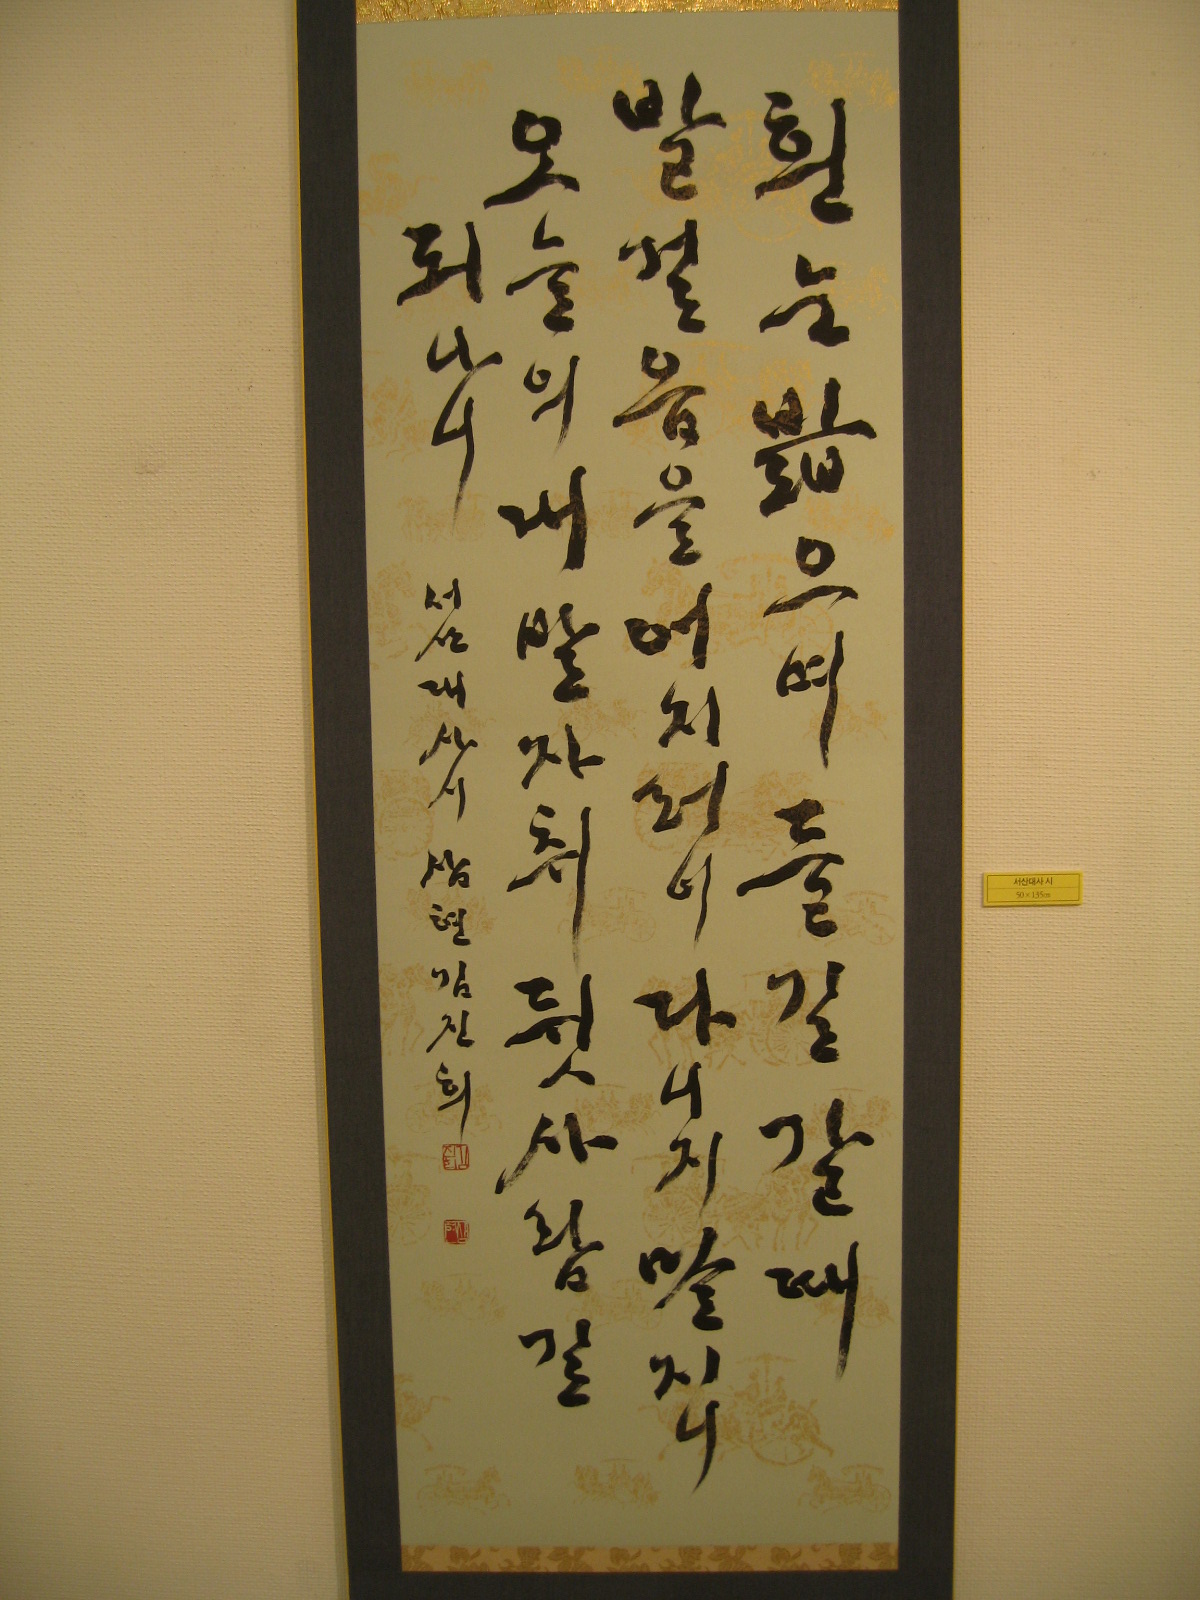 흰 눈 밟으며 들길 갈 때
발걸음을 어지러이 다니지 말지니
오늘의 내 발자취 뒷사람 길
되나니
서산대사 시 삼현 김진희
서산대사 시
50 × 135㎝